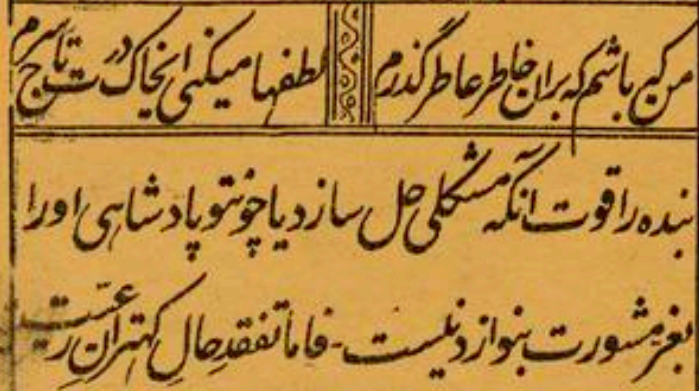 من کی باشم که بران خاطر عاطر گذرم لطفها میکنی ای خاک درت تاج سرم
بنده را قوت آنکه مشکلی حل سازد یا چونتو پادشاهی او را
بعز مشورت بنوازد نیست - فاما تفقد حال کهتران رعیت